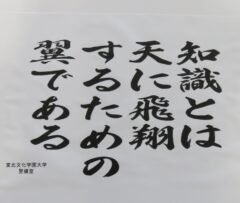 知識とは
天に飛翔
するための
翼である
東北文化学園大学
警備室